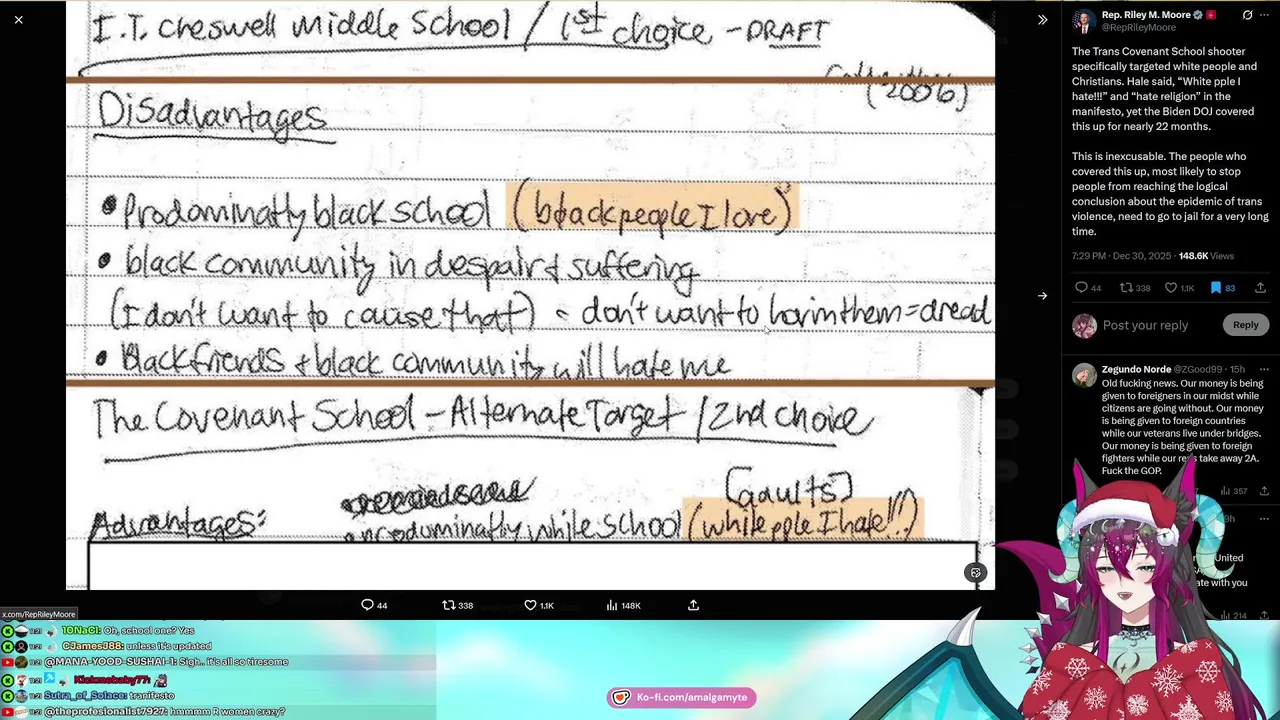 I.T. Creswell Middle School / 1st choice - DRAFT
(2006)
Disadvantages
• Prodominatly black school (black people I love)
• black community in despair & suffering
(I don't want to cause that) - don't want to harm them = dread
• Black friends + black community will hate me
The Covenant School - Alternate Target / 2nd choice
(adults)
Advantages:
produminatly white school (white pple I hate!!!)
44
338
1.1K
148K
x.com/RepRileyMoore
Rep. Riley M. Moore
@RepRileyMoore
The Trans Covenant School shooter
specifically targeted white people and
Christians. Hale said, “White pple I
hate!!!” and “hate religion” in the
manifesto, yet the Biden DOJ covered
this up for nearly 22 months.
This is inexcusable. The people who
covered this up, most likely to stop
people from reaching the logical
conclusion about the epidemic of trans
violence, need to go to jail for a very long
time.
7:29 PM · Dec 30, 2025 · 148.6K Views
44 338 1.1K 83
Post your reply Reply
Zegundo Norde @ZGood99 · 15h
Old fucking news. Our money is being
given to foreigners in our midst while
citizens are going without. Our money
is being given to foreign countries
while our veterans live under bridges.
Our money is being given to foreign
fighters while our reps take away 2A.
Fuck the GOP.
357
United
ate with you
214
11:21 10NaCl: Oh, school one? Yes
11:21 CJamesJ88: unless it's updated
11:21 @MANA-YOOD-SUSHAI-1: Sigh.. it's all so tiresome
11:21 Kickmebaby77:
11:21 Sutra_of_Solace: tranifesto
11:21 @theprofesionalist7927: hmmmm R women crazy?
Ko-fi.com/amalgamyte